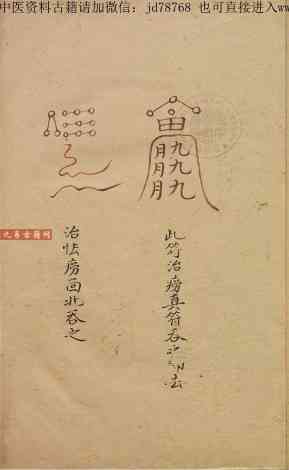 中医资料古籍请加微信：jd78768 也可直接进入w
畐
月九
月九
月九
此符治痨真符吞
去
治怯痨画此吞之
九易古籍网